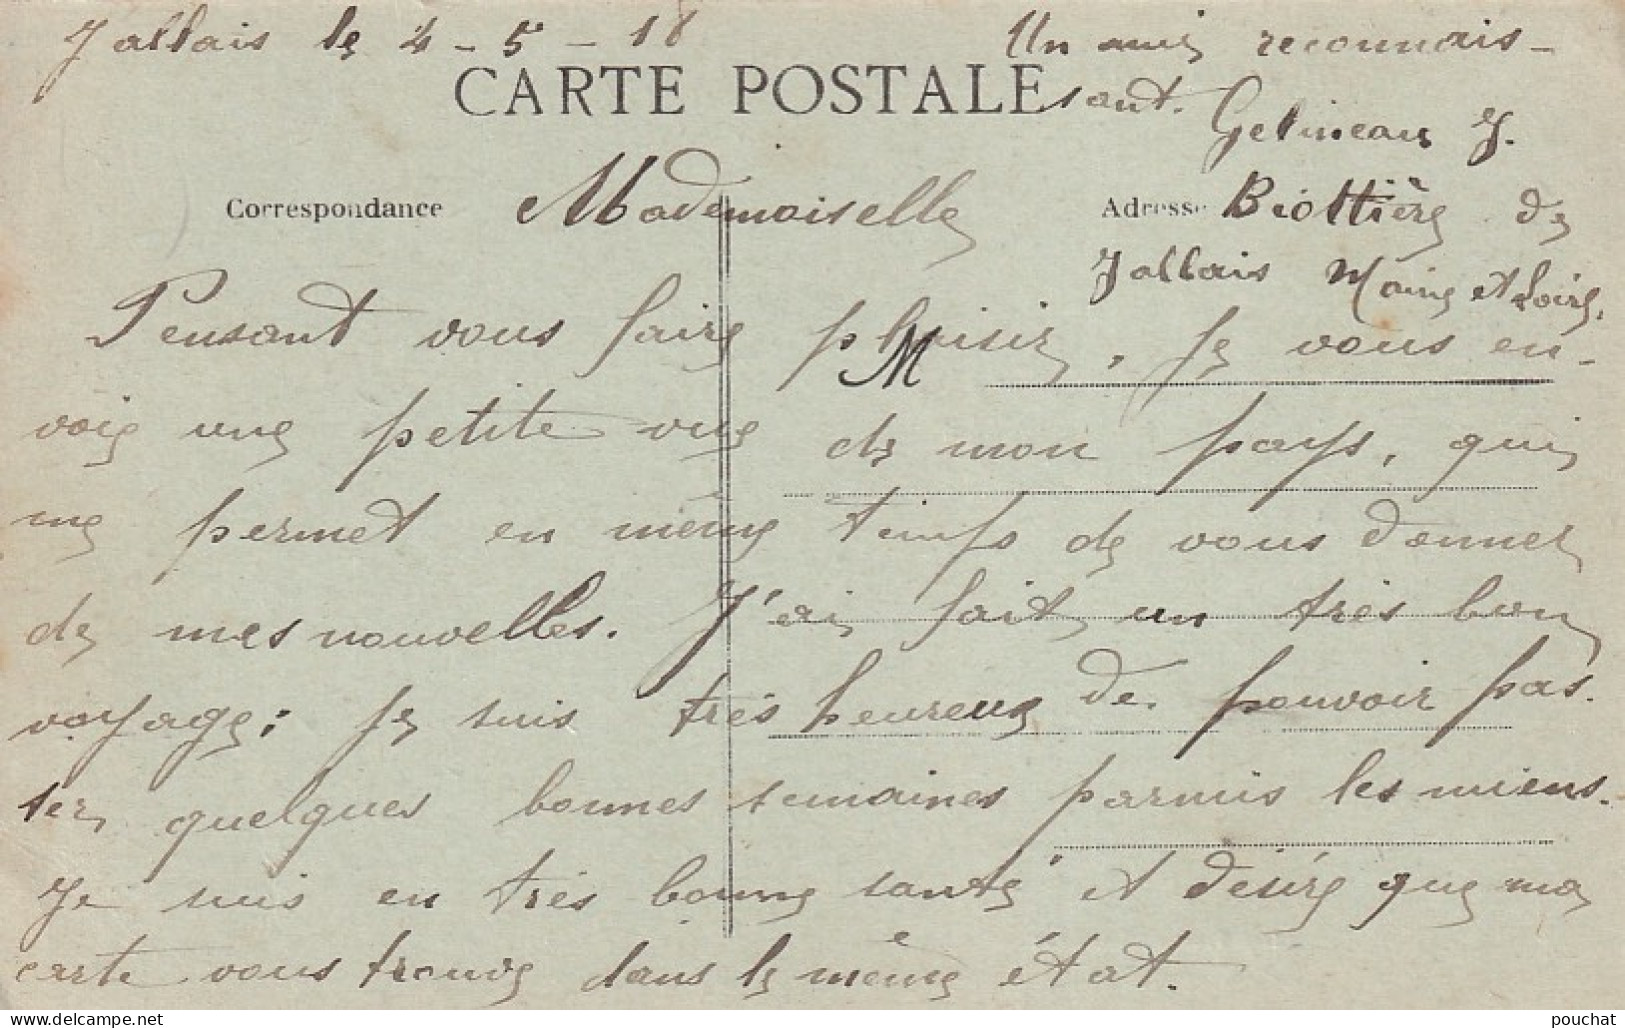 Jallais le 4-5-18
CARTE POSTALE
Correspondance
Adresse
Mademoiselle
Pensant vous faire plaisir, je vous en-
voie une petite vue de mon pays, qui
me permet en même temps de vous donner
de mes nouvelles. J'ai fait un très bon
voyage; je suis très heureux de pouvoir pas-
ser quelques bonnes semaines parmis les miens.
Je suis en très bonne santé et désire que ma
carte vous trouve dans le même état.
Un ami reconnais-
sant. Gelineau J.
Biottière de
Jallais Maine et Loire.
M
pouchat